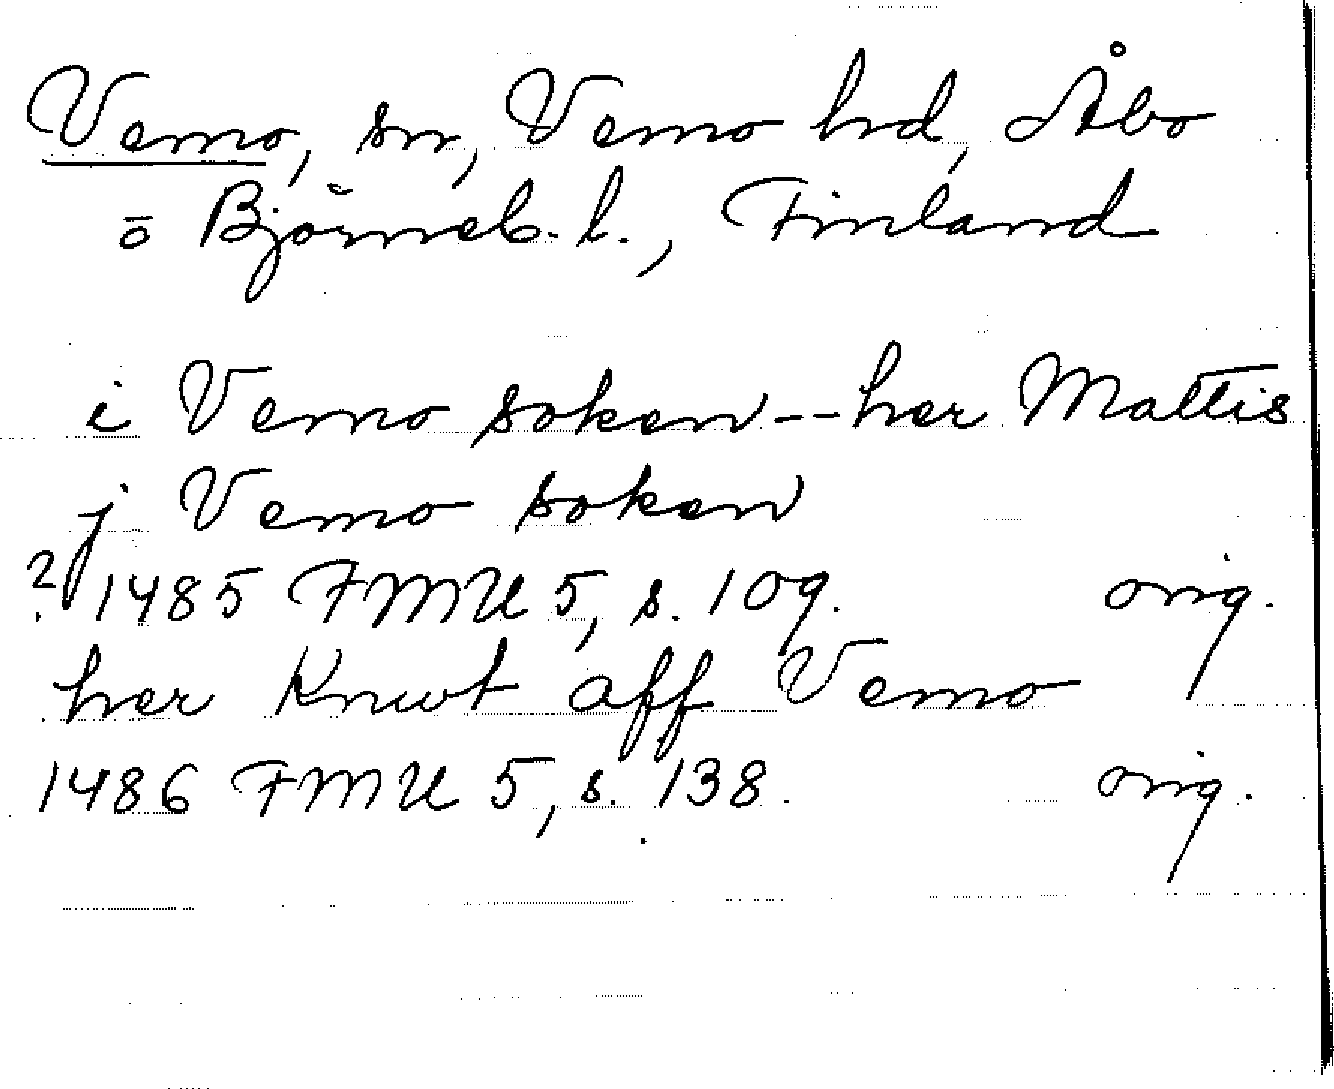 Vemo, sn, Vemo hd, Åbo
o Björneb. l., Finland
i Vemo soken--her Mattis
j Vemo soken
? 1485 FMU 5, s. 109. orig.
her Knwt aff Vemo
1486 FMU 5, s. 138. orig.